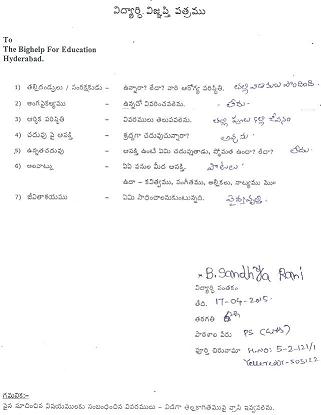 విద్యార్థి విజ్ఞప్తి పత్రము
To
The Bighelp For Education
Hyderabad.
1) తల్లిదండ్రులు / సంరక్షకుడు - ఉన్నారా? లేదా? వారి ఆరోగ్య పరిస్థితి.
2) అంగవైకల్యము - ఉన్నచో వివరించవలెను. లేదు
3) ఆర్థిక పరిస్థితి - వివరములు తెలుపవలెను.
4) చదువు పై ఆసక్తి - శ్రద్ధగా చదువుచున్నారా? అవును
5) ఉన్నతచదువు - ఆసక్తి ఉంటే ఏమి చదువుతాడు, స్తోమత ఉందా? లేదా? లేదు
6) అలవాట్లు - ఏఏ పనుల మీద ఆసక్తి. పాటలు
ఉదా – కవిత్వము, సంగీతము, అల్లికలు, నాట్యము మొ॥
7) జీవితాశయము - ఏమి సాధించాలనుకుంటున్నది.
B. Sandhya Rani
విద్యార్థి సంతకం
తేది. 17-04-2015
తరగతి 6th
పాఠశాల పేరు PS
పూర్తి చిరునామా H.NO: 5-2-121/1
Yellareddy-503122
గమనిక:-
పైన సూచించిన విషయములకు సంబంధించిన వివరములు – విడిగా తెల్లకాగితముపై వ్రాసి ఇవ్వవలెను.